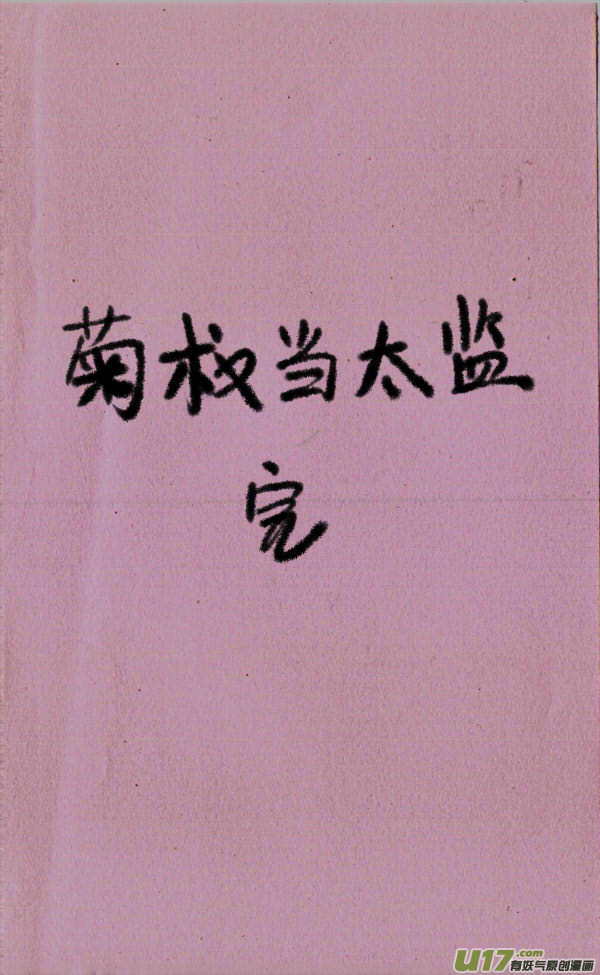 菊叔当太监
完
U17.com
有妖气原创漫画